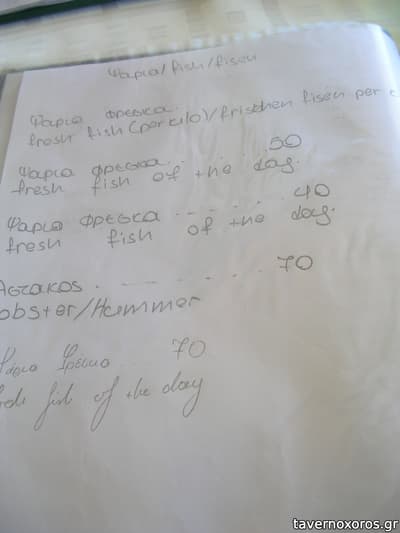 Ψαρια/fish/fisen
Ψαρια φρεσκα.
fresh fish (per cilo)/frischen fisen per
Ψαρια φρεσκα. . 50
fresh fish of the day.
Ψαρια φρεσκα ..... 40
fresh fish of the day.
Αστακος. - - - - . 70
obster/Hummer
Ψάρια Φρέσκα 70
fish of the day
tavernoxoros.gr